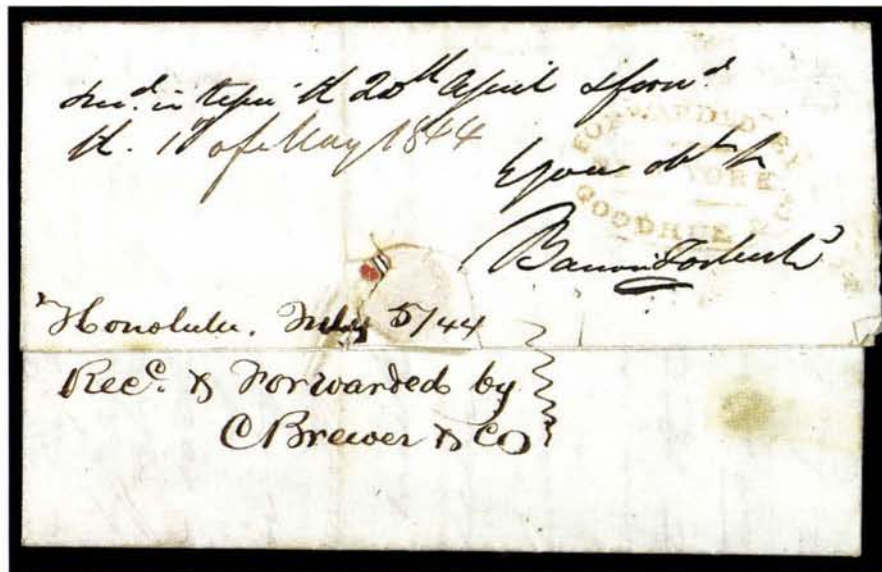 Recd. in Tepic the 20th April & forwd
the. 1st of May 1844
by your obt Ss
Barron Forbes & Co
FORWARDED BY
NEW YORK
GOODHUE & CO
Honolulu. July 5/44
Recd. & Forwarded by
C Brewer & Co